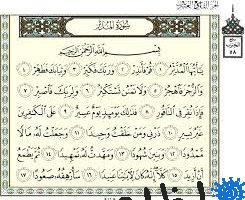 سُورَةُ الْمُدَّثِّرِ
بِسْمِ اللَّهِ الرَّحْمَٰنِ الرَّحِيمِ
يَا أَيُّهَا الْمُدَّثِّرُ ١ قُمْ فَأَنذِرْ ٢ وَرَبَّكَ فَكَبِّرْ ٣ وَثِيَابَكَ فَطَهِّرْ ٤
وَالرُّجْزَ فَاهْجُرْ ٥ وَلَا تَمْنُن تَسْتَكْثِرُ ٦ وَلِرَبِّكَ فَاصْبِرْ ٧
فَإِذَا نُقِرَ فِي النَّاقُورِ ٨ فَذَٰلِكَ يَوْمَئِذٍ يَوْمٌ عَسِيرٌ ٩ عَلَى الْكَافِرِينَ
غَيْرُ يَسِيرٍ ١٠ ذَرْنِي وَمَنْ خَلَقْتُ وَحِيدًا ١١ وَجَعَلْتُ لَهُ مَالًا
مَّمْدُودًا ١٢ وَبَنِينَ شُهُودًا ١٣ وَمَهَّدتُّ لَهُ تَمْهِيدًا ١٤ ثُمَّ يَطْمَعُ
أَنْ أَزِيدَ ١٥ كَلَّا إِنَّهُ كَانَ لِآيَاتِنَا عَنِيدًا ١٦ سَأُرْهِقُهُ صَعُودًا ١٧